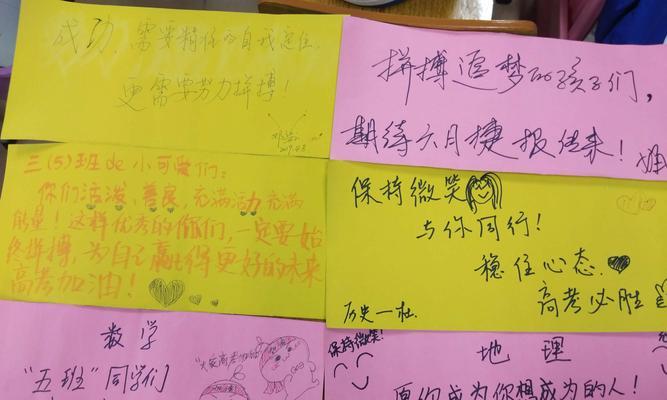 成功，需要精准的自我定位，
更需要努力拼搏！
拼搏追梦的孩子们，
期待六月捷报传来！
三(5)班de小可爱们：
你们活泼、善良，充满活力充满
能量！这样优秀的你们，一定要始
终拼搏，为自己赢得更好的未来
高考加油！
保持微笑
与你同行！
稳住心态，
高考必胜
历史一杜
数学
"五班"同学们
"大家高考加油"
保持微笑！
地理
愿你成为你想成为的人！